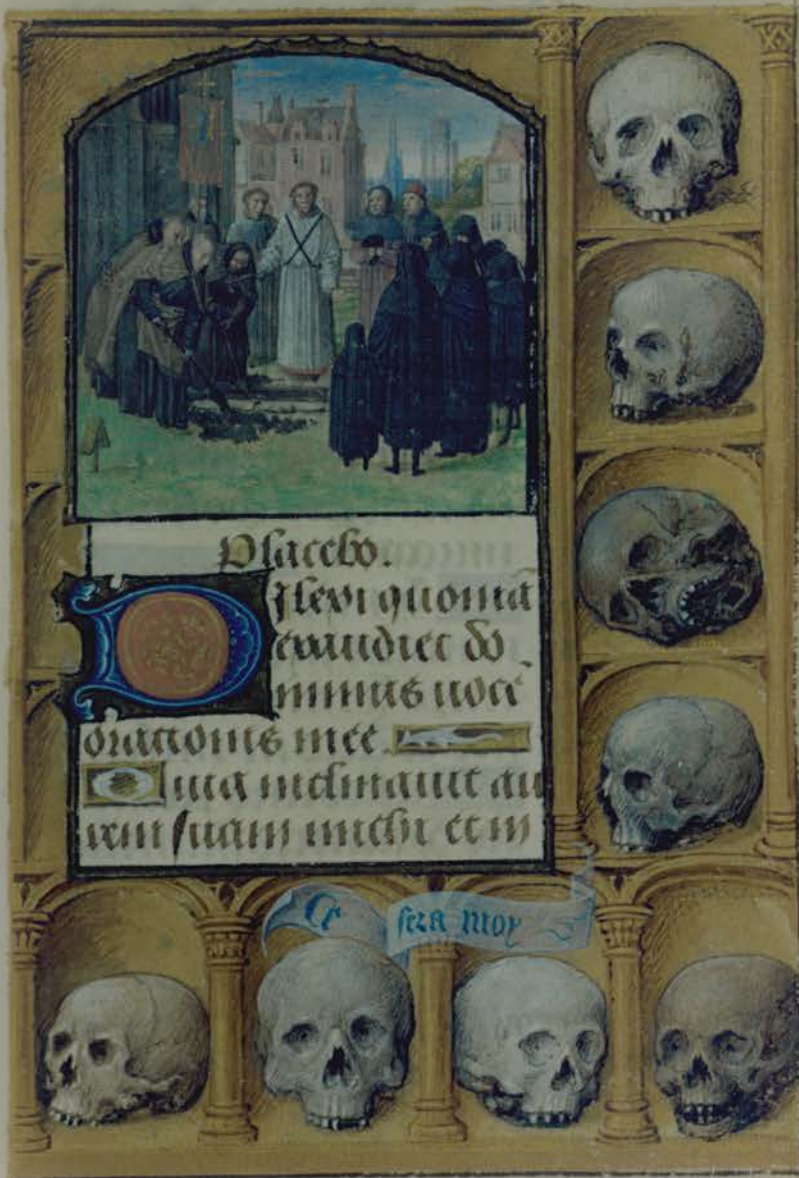 Placebo.
Dilexi quoniā
exaudiet do
minus uocē
orationis mee.
Quia inclinauit au
rem suam michi et in
Ce sera moy